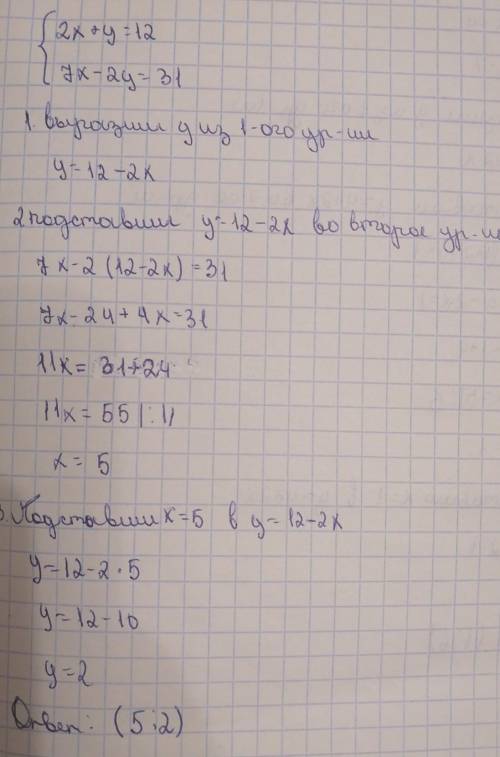 2x+y=12
7x-2y=31
1. выразим y из 1-ого ур-ия
y=12-2x
2 подставим y=12-2x во второе ур-ия
7x-2(12-2x)=31
7x-24+4x=31
11x=31+24
11x=55|:11
x=5
3. Подставим x=5 в y=12-2x
y=12-2·5
y=12-10
y=2
Ответ: (5;2)